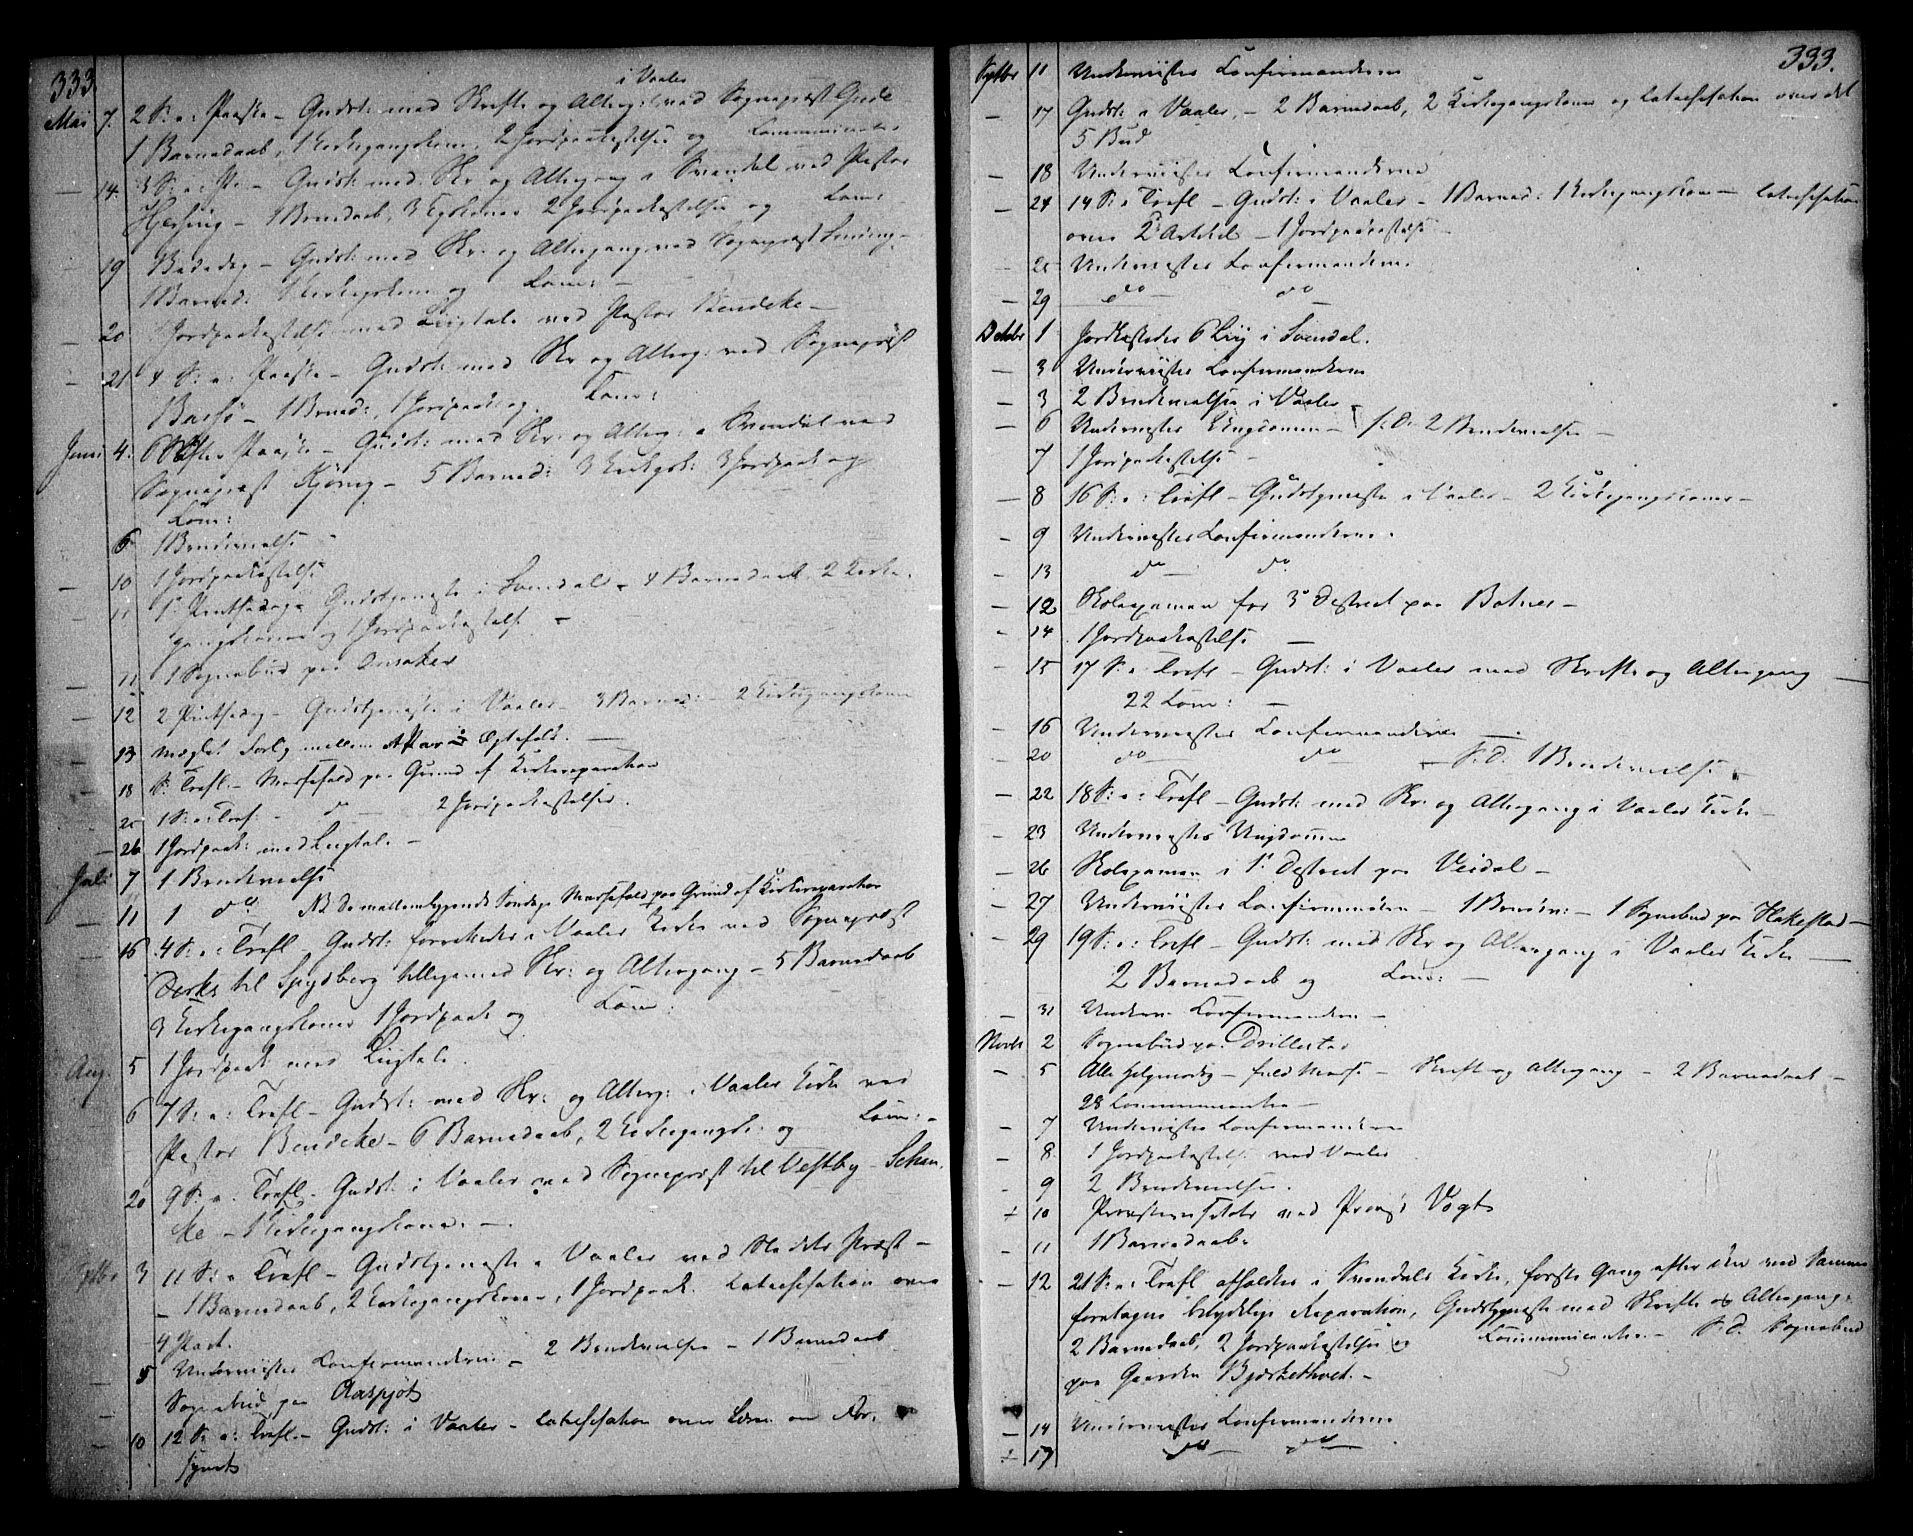 333.
i Vaaler
Mai 7. 2 S: e: Paaske – Gudst: med Skrifte og Alterg: ved Sognepræst Gude
1 Barnedaab, 1 Kirkegangskone, 2 Jordpaakastelse og Communicanter
– 14. 3 S: e: P – Gudst: med Skr: og Altergang i Svendal ved Pastor
– 1 Barnedaab, 3 2 Jordpaakastelse og Com:
– 19 Bededag – Gudst: med Skr: og Altergang ved Sognepræst
1 Barned: 1 Kirkegskone og Com: –
– 20 1 Jordpaakastelse med Liigtale ved Pastor Bendeke –
– 21 4 S: e: Paaske – Gudst: med Skr og Alterg: ved Sognepræst
Bassø – 1 Barned:, 1 Jordpaak: og Com:
Juni 4. 6 S. efter Paaske – Gudst: med Skr: og Alterg: i Svendal ved
Sognepræst – 5 Barned: 3 Kirkgsk: 3 Jordpaak og
Com:
6 1 Brudevielse –
– 10 1 Jordpaakastelse
– 11 1 Pintsedag Gudstjeneste i Svendal – 4 Barnedaab, 2 Kirke-
gangskoner og 1 Jordpaakastelse –
– 11 1 Sognebud paa
– 12 2 Pintsedag – Gudstjeneste i Vaaler – 3 Barned: – 2 Kirkegangskoner
– 13 mæglet Forlig mellem Ægtefolk. –
– 18 S: Trefl. – Messefald paa Grund af Kirkereparation
– 25 1 S: e: Tref: – do – 2 Jordpaakastelser.
– 26 1 Jordpaak: med Liigtale –
Juli 7 1 Brudevielse
– 11 1 do NB De mellemliggende Søndage Messefald paa Grund af Kirkereparation
– 16 4 S: e: Trefl – Gudst: forrettedes i Vaaler Kirke ved Sognepræst
Derks til Spydberg tilligemed Skr: og Altergang – 5 Barnedaab
3 Kirkegangskoner 1 Jordpaak og Com:
Aug. 5 1 Jordpaak med Liigtale.
6 7 S: e: Trefl – Gudst: med Skr: og Alterg: i Vaaler Kirke ved
Pastor Bendeke – 6 Barnedaab, 2 Kirkegangsk: og Com: –
20 9 S: e: Trefl – Gudst: i Vaaler ved Sognepræst til Vestby – Schan-
ke – 1 Kirkegangskone. –.
Septbr 3 11 S: e Trefl – Gudstjeneste i Vaaler ved Stedets Præst –
– 1 Barnedaab, 2 Kirkegangskoner, 1 Jordpaak. Catechisation over
4 Part.
5 Underviistes Confirmanderne – 2 Brudevielser – 1 Barnedaab
– Sognebud paa Aaspjøt
– 10 12 S: e: Trefl. – Gudst: i Vaaler – Catechisation over Læren om For-
synet
333.
Septbr 11 Underviistes Confirmanderne
– 17 Gudst: i Vaaler, – 2 Barnedaab, 2 Kirkegangskoner og Catechisation over det
5 Bud
– 18 Underviistes Confirmanderne
– 24 14 S: e Trefl – Gudst: i Vaaler – 1 Barned: 1 Kirkegangskone – Catechisation
over 2 Artikel – 1 Jordpaakastelse
– 25 Underviistes Confirmanderne.
– 29 do – do –
Octobr 1 Jordkastedes 6 Liig i Svendal.
– 3 Underviistes Confirmanderne
– 3 2 Brudevielser i Vaaler
– 6 Underviistes Ungdommen – S: D: 2 Brudevielser –
7 1 Jordpaakastelse –
– 8 16 S: e: Trefl – Gudstjeneste i Vaaler – 2 Kirkegangskoner –
– 9 Underviistes Confirmanderne.
– 13 do – do
– 12 Skoleexamen for 3 District paa Botner –
– 14 1 Jordpaakastelse –
– 15 17 S: e Trefl – Gudst: i Vaaler med Skrifte og Altergang –
22 Com: –
– 16 Underviistes Confirmanderne –
– 20 do – do – S: D: 1 Brudevielse –
– 22 18 S: e: Trefl – Gudst: med Skr: og Altergang i Vaaler Kirke –
– 23 Underviistes Ungdommen
– 26 Skoleexamen i 1 District paa Veidal –
– 27 Underviistes Confirmanderne – 1 – 1 Sognebud paa Hakestad –
– 29 19 S: e: Trefl – Gudst: med Skr og Altergang i Vaaler Kirke –
2 Barnedaab og Com: –
– 31 Underv: Confirmanderne –
Novbr 2 Sognebud paa
– 5 Alle Helgensdag – fuld Messe – Skrift og Altergang – 2 Barnedaab –
28 Communicanter –
– 7 Underviistes Confirmanderne
– 8 1 Jordpaakastelse ved Vaaler
– 9 2 Brudevielser.
– 10 ved Provst Vogt
– 11 1 Barnedaab
– 12 21 S: e: Trefl afholdtes i Svendals Kirke, første Gang efter den ved Samme
foretagne betydelige Reparation, Gudstjeneste med Skrifte og Altergang,
2 Barnedaab, 2 Jordpaakastelse og Communicanter – S. D. Sognebud
paa Gaarden Bjørkethvet. –
– 14 Underviistes Confirmanderne
– 17 do – do –